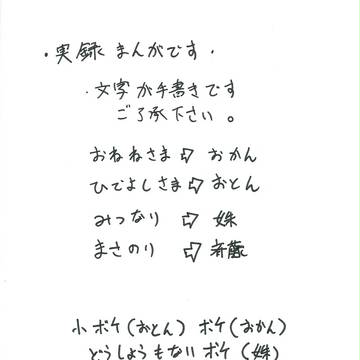 ・実録 まんがです・
・文字が手書きです
ご了承下さい。
おねねさま⇨おかん
ひでよしさま⇨おとん
みつなり ⇨ 姝
まさのり ⇨ 斉蔵
小ボケ(おとん) ボケ(おかん)
どうしょうもないボケ(姝)